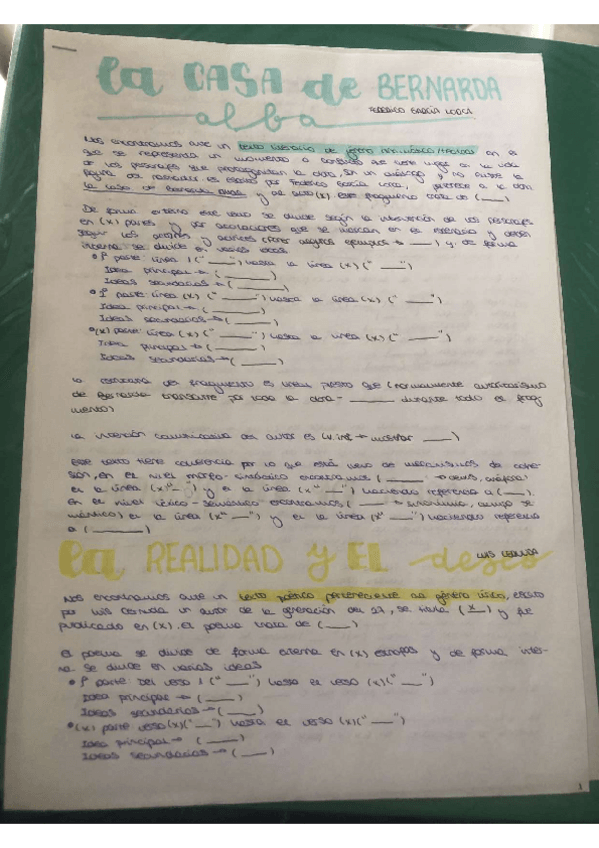 la CASA de BERNARDA
alba
FEDERICO GARCÍA LORCA
Nos encontramos ante un texto literario de género dramático/teatral en el
que se representa un momento o conflicto que tiene lugar en la vida
de los personajes que protagonizan la obra, en un diálogo y no existe la
figura del narrador. Es escrito por Federico García Lorca, pertenece a la obra
La casa de Bernarda Alba y al acto (x). Este fragmento trata de (___)
De forma externa este texto se divide según la intervención de los personajes
en (x) partes y por acotaciones que se
seguir los actores y actrices (poner algunos ejemplos → ___) y de forma
interna se divide en varias ideas
• 1ª parte: línea 1 ("___") hasta la línea (x) ("___")
Idea principal → (___)
Ideas secundarias → (___)
• 1ª parte línea (x) ("___") hasta la línea (x) ("___")
Idea principal → (___)
Ideas secundarias → (___)
• (x) parte: línea (x) ("___") hasta la línea (x) ("___")
Idea principal → (___)
Ideas secundarias → (___)
La estructura del fragmento es lineal puesto que (normalmente autoritarismo
de Bernarda transcurre por toda la obra - ___ durante todo el frag
mento)
La intención comunicativa del autor es (v.inf → mostrar ___)
Este texto tiene coherencia por lo que está lleno de mecanismos de cohe-
sión, en el nivel morfo-sintáctico encontramos (___ → deixis, anáforas)
en la línea (x "___") y en la línea (x "___") haciendo referencia a (___).
En el nivel léxico-semántico encontramos (___ → sinónimo, campo se
mántico) en la línea (x "___") y en la línea (x "___") haciendo referencia
a (___)
la REALIDAD y EL deseo
LUIS CERNUDA
Nos encontramos ante un texto poético perteneciente al género lírico, escrito
por Luis Cernuda un autor de la generación del 27, se titula (x) y fue
publicado en (x). El poema trata de (___)
El poema se divide de forma externa en (x) estrofas y de forma inter-
na se divide en varias ideas
• 1ª parte: Del verso 1 ("___") hasta el verso (x) ("___")
Idea principal → (___)
Ideas secundarias → (___)
• (x) parte verso (x) ("___") hasta el verso (x) ("___")
Idea principal → (___)
Ideas secundarias → (___)
1